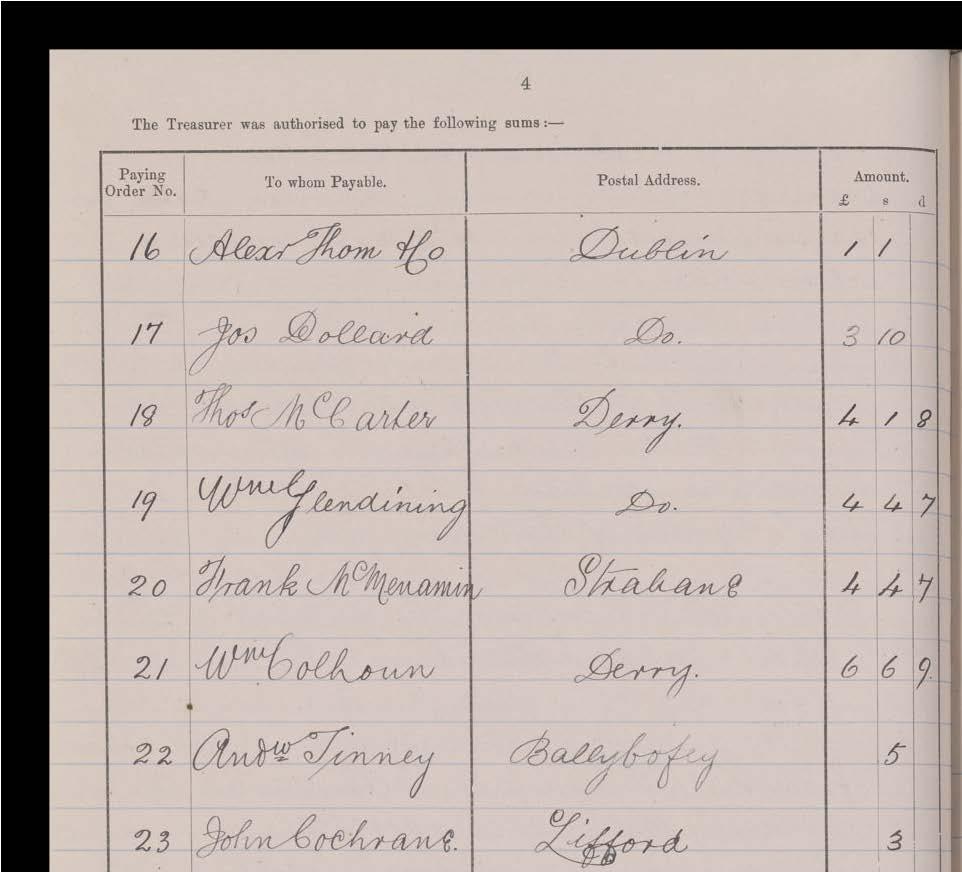 4
The Treasurer was authorised to pay the following sums :—
Paying Order No. To whom Payable. Postal Address. Amount.
£ s d
16 Alexr Thom & Co Dublin 1 1
17 Jos Dollard Do. 3 10
18 Thos McCarter Derry. 4 1 8
19 Wm Glendining Do. 4 4 7
20 Frank McMenamin Strabane 4 4 7
21 Wm Colhoun Derry. 6 6 9
22 Andw Tinney Ballybofey 5
23 John Cochrane. Lifford 3